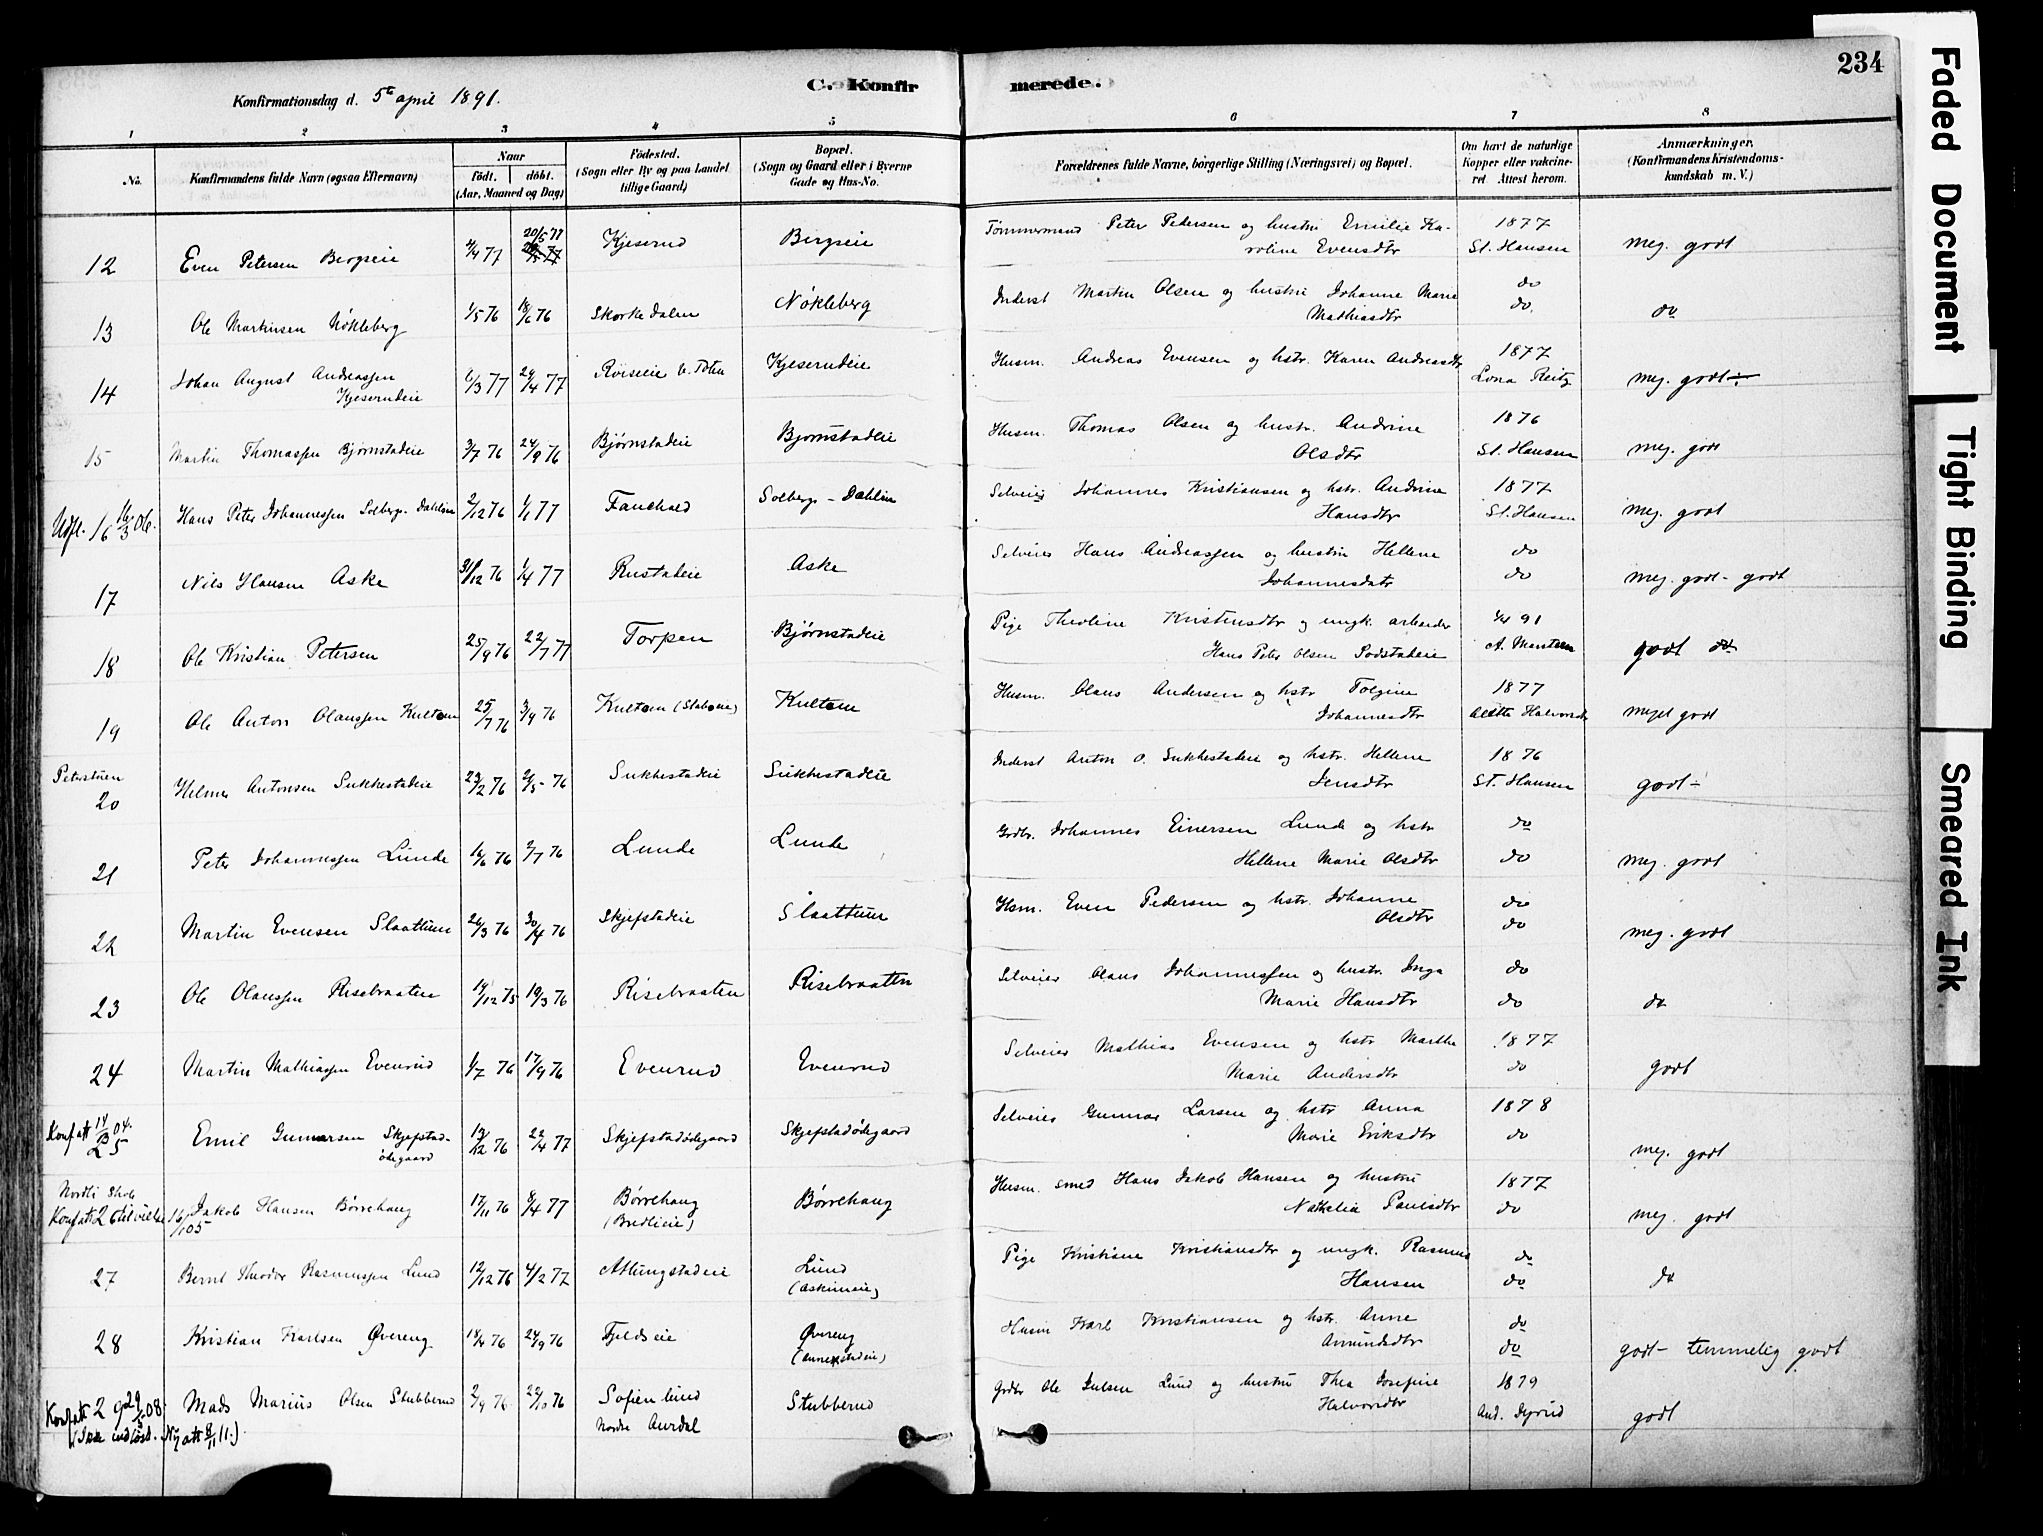 234
C. Konfirmerede.
Konfirmationsdag d. 5te april 1891.
1 2 3 4 5 6 7 8
No. Konfirmandens fulde Navn (ogsaa Efternavn) Naar født. døbt. (Aar, Maaned og Dag) Fødested. (Sogn eller By og paa Landet tillige Gaard) Bopæl. (Sogn og Gaard eller i Byerne Gade og Hus-No. Forældrenes fulde Navne, borgerlige Stilling (Næringsvei) og Bopæl. Om havt de naturlige Kopper eller vakcineret Attest herom. Anmærkninger. (Konfirmandens Kristendomskundskab m. V.)
12 Even Petersen Bergseie 4/4 77 20/5 77 Kjeserud Bergseie Tømmermand Peter Petersen og hustru Emilie Karoline Evensdtr 1877 St. Hansen meg. godt
13 Ole Martinsen Nøkleberg 1/5 76 18/6 76 Skorkedalen Nøkleberg Inderst Martin Olsen og hustru Johanne Marie Mathiasdtr do do. do
14 Johan August Andreassen Kjeserudeie 6/3 77 29/4 77 Røiseeie V. Toten Kjeserudeie Husm. Andreas Evensen og hstr. Karen Andreasdtr 1877 Lona Reitz meg. godt
15 Martin Thomassen Bjørnstadeie 3/7 76 24/9 76 Bjørnstadeie Bjørnstadeie Husm. Thomas Olsen og hustr. Andrine Olsdtr 1876 St. Hansen meg. godt
Udfl. 16/3 06. 16 Hans Peter Johannessen Solbergs-Dahlin 2/12 76 1/1 77 Fauchald Solbergs-Dahlin Selveier Johannes Kristiansen og hstr. Andrine Hansdtr 1877 St. Hansen meg. godt
17 Nils Hansen Aske 31/12 76 1/4 77 Rustadeie Aske Selveier Hans Andreassen og hustru Hellene Johannesdatr do do meg. godt - godt
18 Ole Kristian Petersen 25/9 76 22/7 77 Torpen Bjørnstadeie Pige Theoline Kristensdtr og ungk. arbeider Hans Peter Olsen Sodstadeie 4/4 91 godt do
19 Ole Anton Olaussen Kultom 25/7 76 3/9 76 Kultom (Slaboeie) Kultom Husm. Olaus Andersen og hstr Tolgine Johannesdtr 1877 Alette Halvorsdtr meget godt
Peterstuen 20 Helmer Antonsen Sukkestadeie 29/2 76 2/5 - 76 Sukkestadeie Sukkestadeie Inderst Anton O. Sukkestadeie og hstr. Hellene Jensdtr 1876 St. Hansen godt -
21 Peter Johannessen Lunde 16/6 76 2/7 76 Lunde Lunde Grdbr. Johannes Einersen Lunde og hstr Hellene Marie Olsdtr do do meg. godt
22 Martin Evensen Slaattum 26/3 76 30/4 76 Skjefstadeie Slaattum Hsm. Even Pedersen og hstr. Johanne Olsdtr do do meg. godt
23 Ole Olaussen Risebraaten 14/12 75 19/3 76 Risebraaten Risebraaten Selveier Olaus Johannessen og hustr. Inga Marie Hansdtr do do do
24 Martin Mathiassen Evenrud 1/7 76 17/9 76 Evenrud Evenrud Selveier Mathias Evensen og hstr Martha Marie Andersdtr 1877 do godt
Konfatt 14/3 04. 25 Emil Gunnarsen Skjefstadødegaard 12/12 76 22/4 77 Skjefstadødegaard Skjefstadødegaard Selveier Gunnar Larsen og hstr Anna Marie Eriksdtr 1878 do meg. godt
Konfatt 26 til vielse 16/1 05 Jakob Hansen Børrehaug 17/11 76 8/4 77 Børrehaug (Bredlieie) Børrehaug Husm. smed Hans Jakob Hansen og hustru Nathalia Paulsdtr 1877 do meg. godt
27 Bernt Theodor Rasmussen Lund 12/12 76 4/2 77 Attungstadeie Lund (Askimeie) Pige Kristiane Kristiansdtr og ungk. Rasmus Hansen do do do
28 Kristian Karlsen Øvereng 18/4 76 24/9 76 Fjeldseie Øvereng (Annexstadeie) Husm Karl Kristiansen og hstr. Anne Amundsdtr do do godt - temmelig godt
Konfatt 29 9/5 08. (Ikke indløst. Ny att 8/11 11.) Mads Marius Olsen Stubberud 2/9 76 22/10 76 Sofienlund Nordre Aurdal Stubberud Grdbr Ole Julsen Lund og hustru Thea Josefine Halvorsdtr 1879 And. Dyrud godt
Faded Document
Tight Binding
Smeared Ink